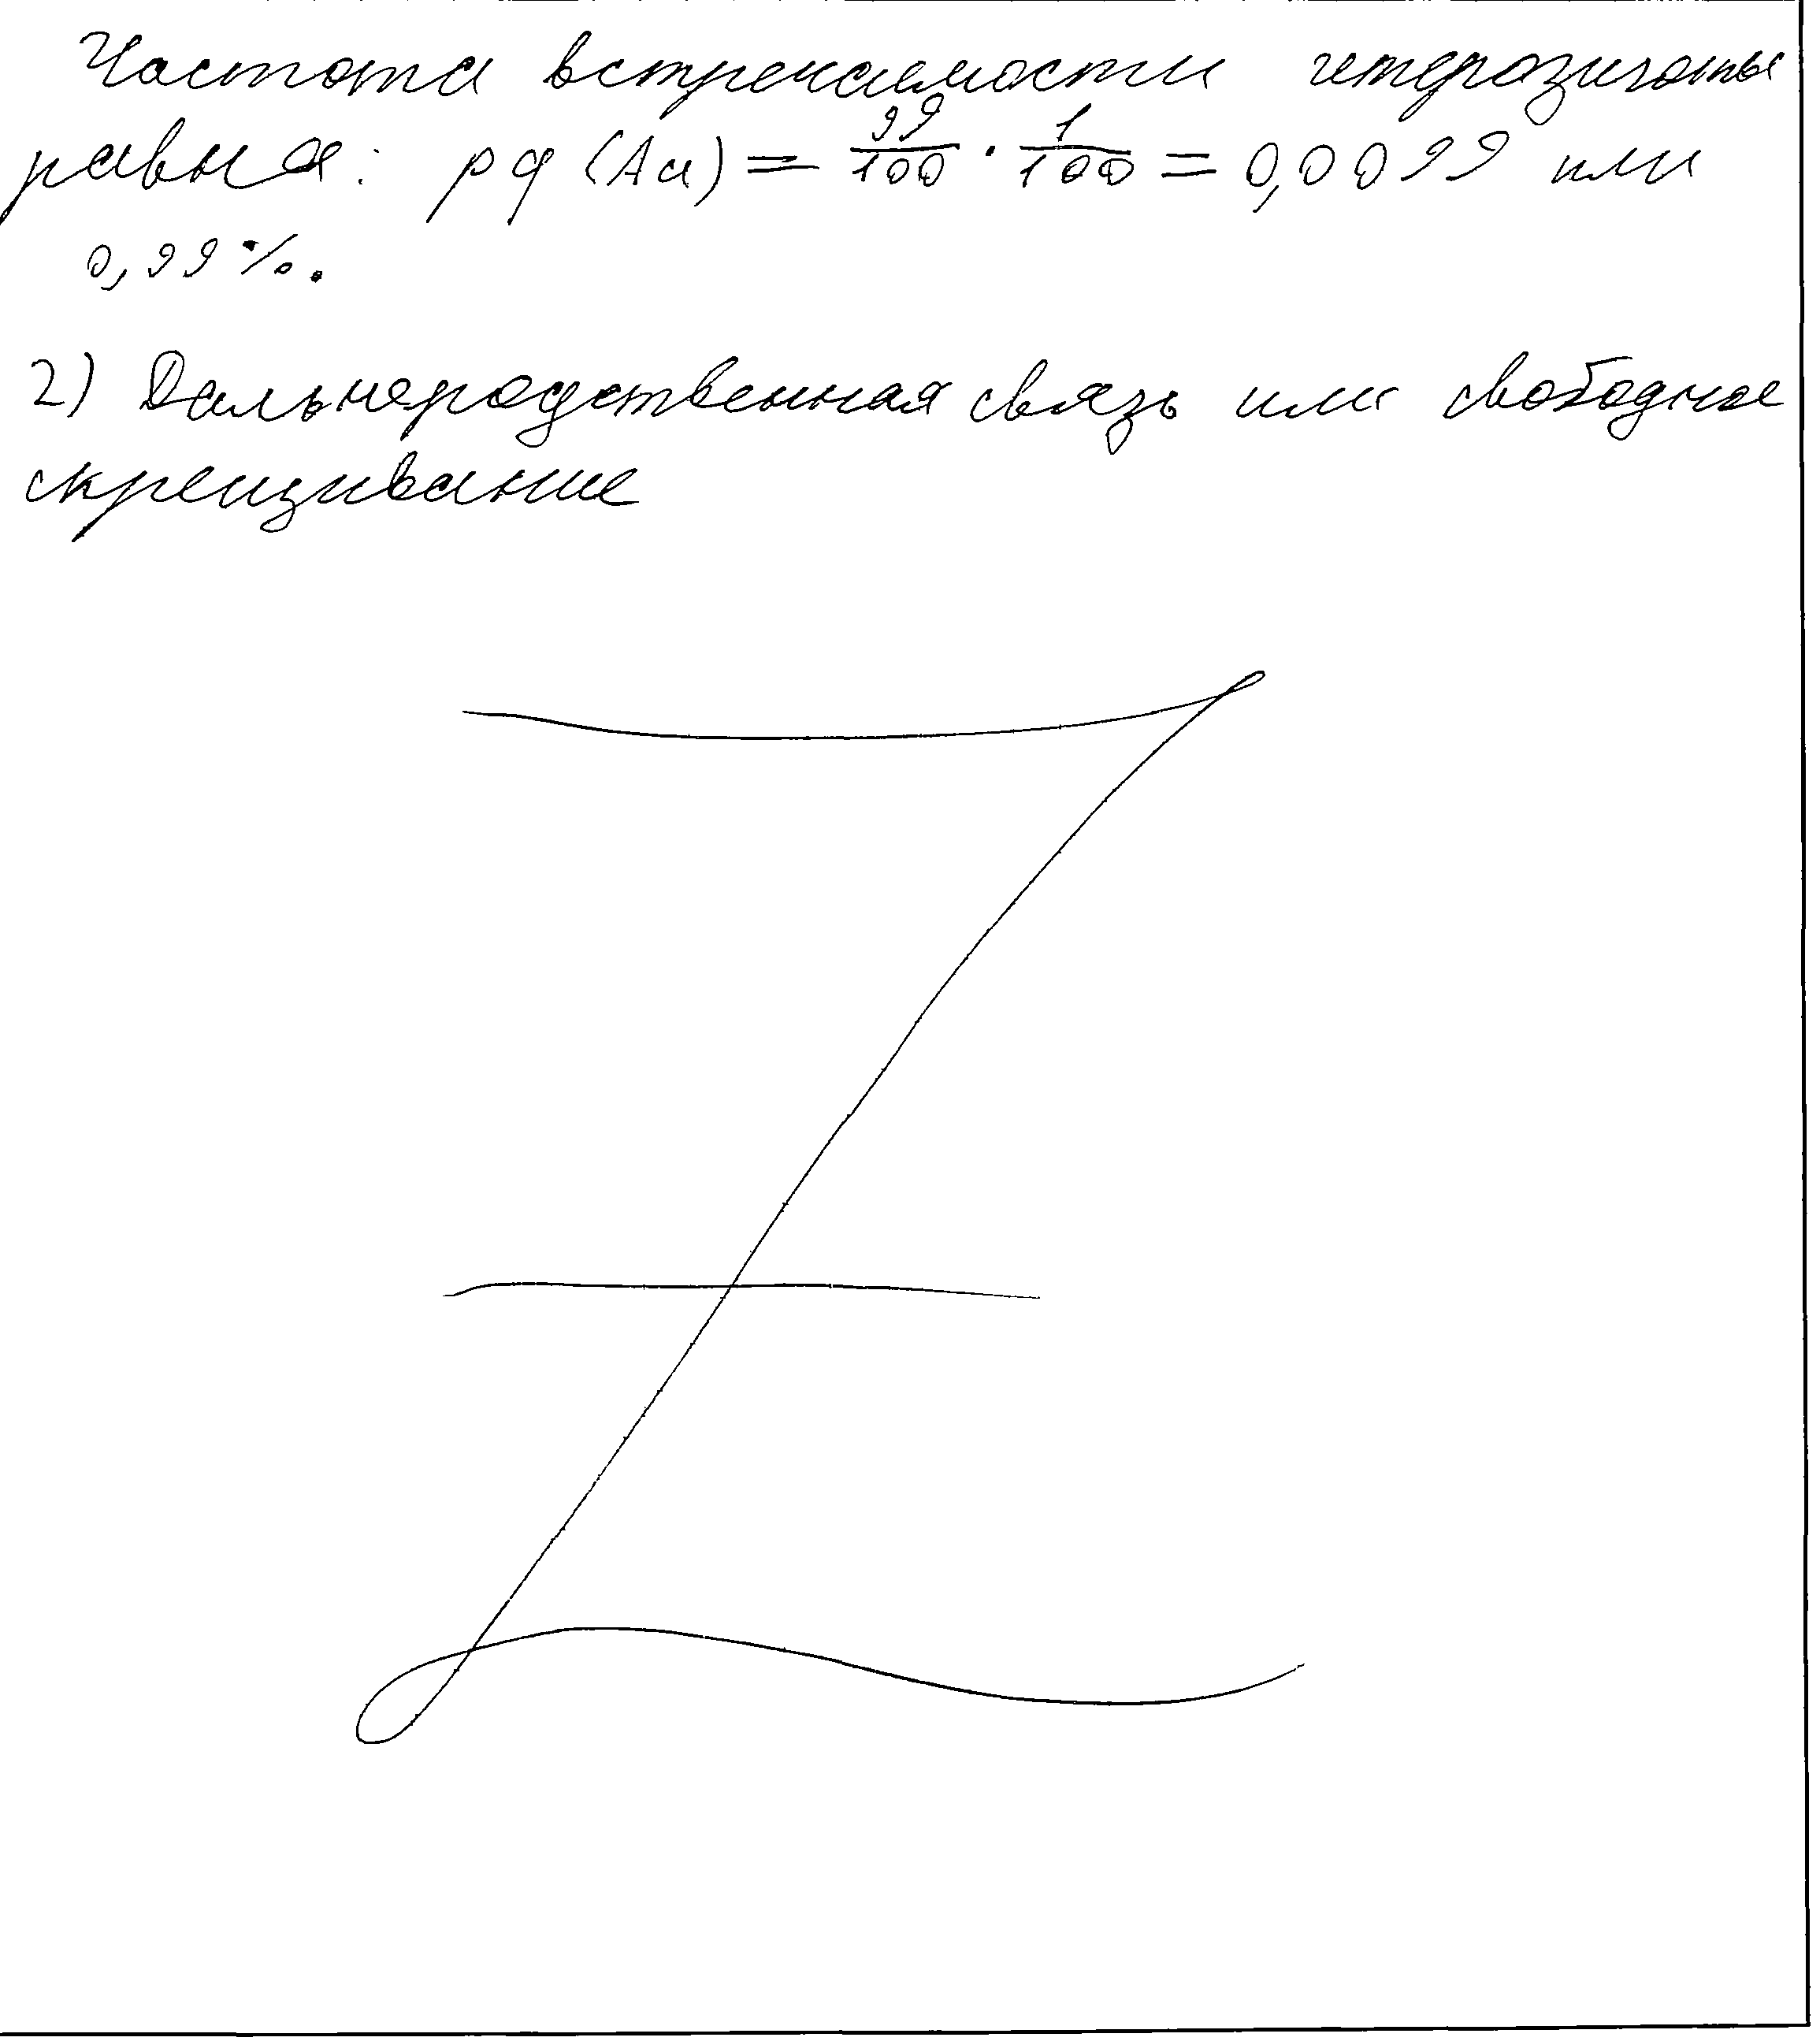 Частота встречаемости гетерозиготы
равна: pq (Aa) = 99/100 · 1/100 = 0,0099 или
0,99%.
2) Дальнеродственная связь или свободное
скрещивание
Z